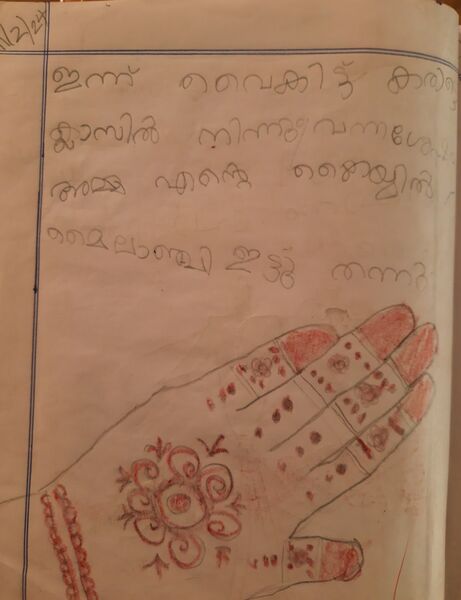 ഇന്ന് വൈകിട്ട്
ക്ലാസിൽ നിന്നും വന്നശേഷം
അമ്മ എന്റെ കൈയ്യിൽ
മൈലാഞ്ചി ഇട്ടു തന്നു.